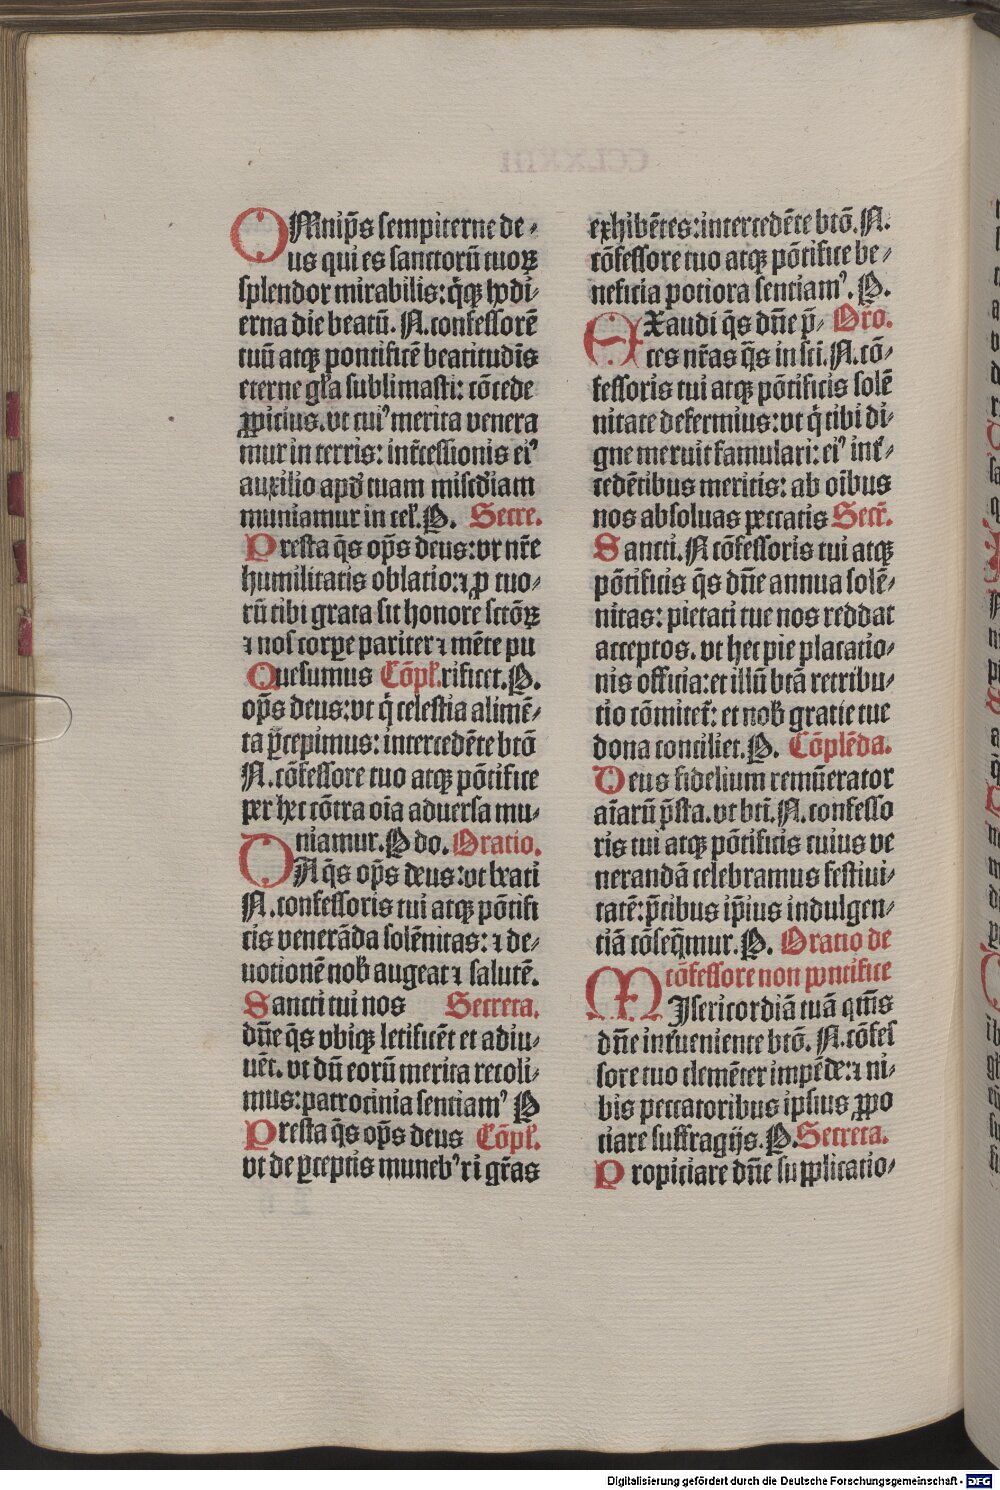 OMnip̄s sempiterne de⸗
us qui es sanctorū tuoꝝ
splendor mirabilis: q̄qꝫ hodi⸗
erna die beatū. N. confessorē
tuū atqꝫ pontificē beatitudīs
eterne gl̄a sublimasti: cōcede
ꝓpicius. vt cuiꝰ merita venera
mur in terris: int̄cessionis eiꝰ
auxilio apd̕ tuam misc̄diam
muniamur in cel̕. P. Secre.
Presta q̄s op̄s deus: vt nr̄e
humilitatis oblatio: ⁊ ꝓ tuo⸗
rū tibi grata sit honore sctōꝝ
⁊ nos corpore pariter ⁊ mēte pu
Quesumus Cōpl̕. rificet. P.
op̄s deus: vt q̄ celestia alimē⸗
ta p̄cepimus: intercedēte btō
N. cōfessore tuo atqꝫ pōtifice
per hec cōtra oīa aduersa mu⸗
niamur. P do. Oratio.
DA q̄s op̄s deus: vt beati
N. confessoris tui atqꝫ pōtifi
cis venerāda solēnitas: ⁊ de⸗
uotionē nob̕ augeat ⁊ salutē.
Sancti tui nos Secreta.
dn̄e q̄s vbiqꝫ letificēt et adiu⸗
uēt. vt dū eorū merita recoli⸗
mus: patrocinia sentiamꝰ P
Presta q̄s op̄s deus Cōpl̕.
vt de ꝑceptis munebꝰ ri gr̄as
exhibētes: intercedēte btō. N.
cōfessore tuo atqꝫ pōtifice be⸗
neficia potiora sentiamꝰ. P.
EXaudi q̄s dn̄e p̄⸗ Oro.
ces nr̄as q̄s in scī. N. cō⸗
fessoris tui atqꝫ pōtificis solē
nitate deferimus: vt q̄ tibi di⸗
gne meruit famulari: eiꝰ int̕⸗
cedētibus meritis: ab oībus
nos absoluas peccatis Secr̄.
Sancti. N cōfessoris tui atqꝫ
pōtificis q̄s dn̄e annua solē⸗
nitas: pietati tue nos reddat
acceptos. vt hec pie placatio⸗
nis officia: et illū btā retribu⸗
tio cōmitet̕: et nob̕ gratie tue
dona conciliet. P. Cōplēda.
Deus fidelium remūerator
aīarū p̄sta. vt btī. N. confesso
ris tui atqꝫ pōtificis cuius ve
nerandā celebramus festiui⸗
tatē: p̄cibus ip̄ius indulgen⸗
tiā cōseq̄mur. P. Oratio de
cōfessore non pontifice
MIsericordiā tuā qm̄s
dn̄e int̕ueniente btō. N. cōfes
sore tuo clemēter impēde: ⁊ ni⸗
bis peccatoribus ipsius ꝓpo
ciare suffragijs. P. Secreta.
Propiciare dn̄e supplicatio⸗
Digitalisierung gefördert durch die Deutsche Forschungsgemeinschaft - DFG